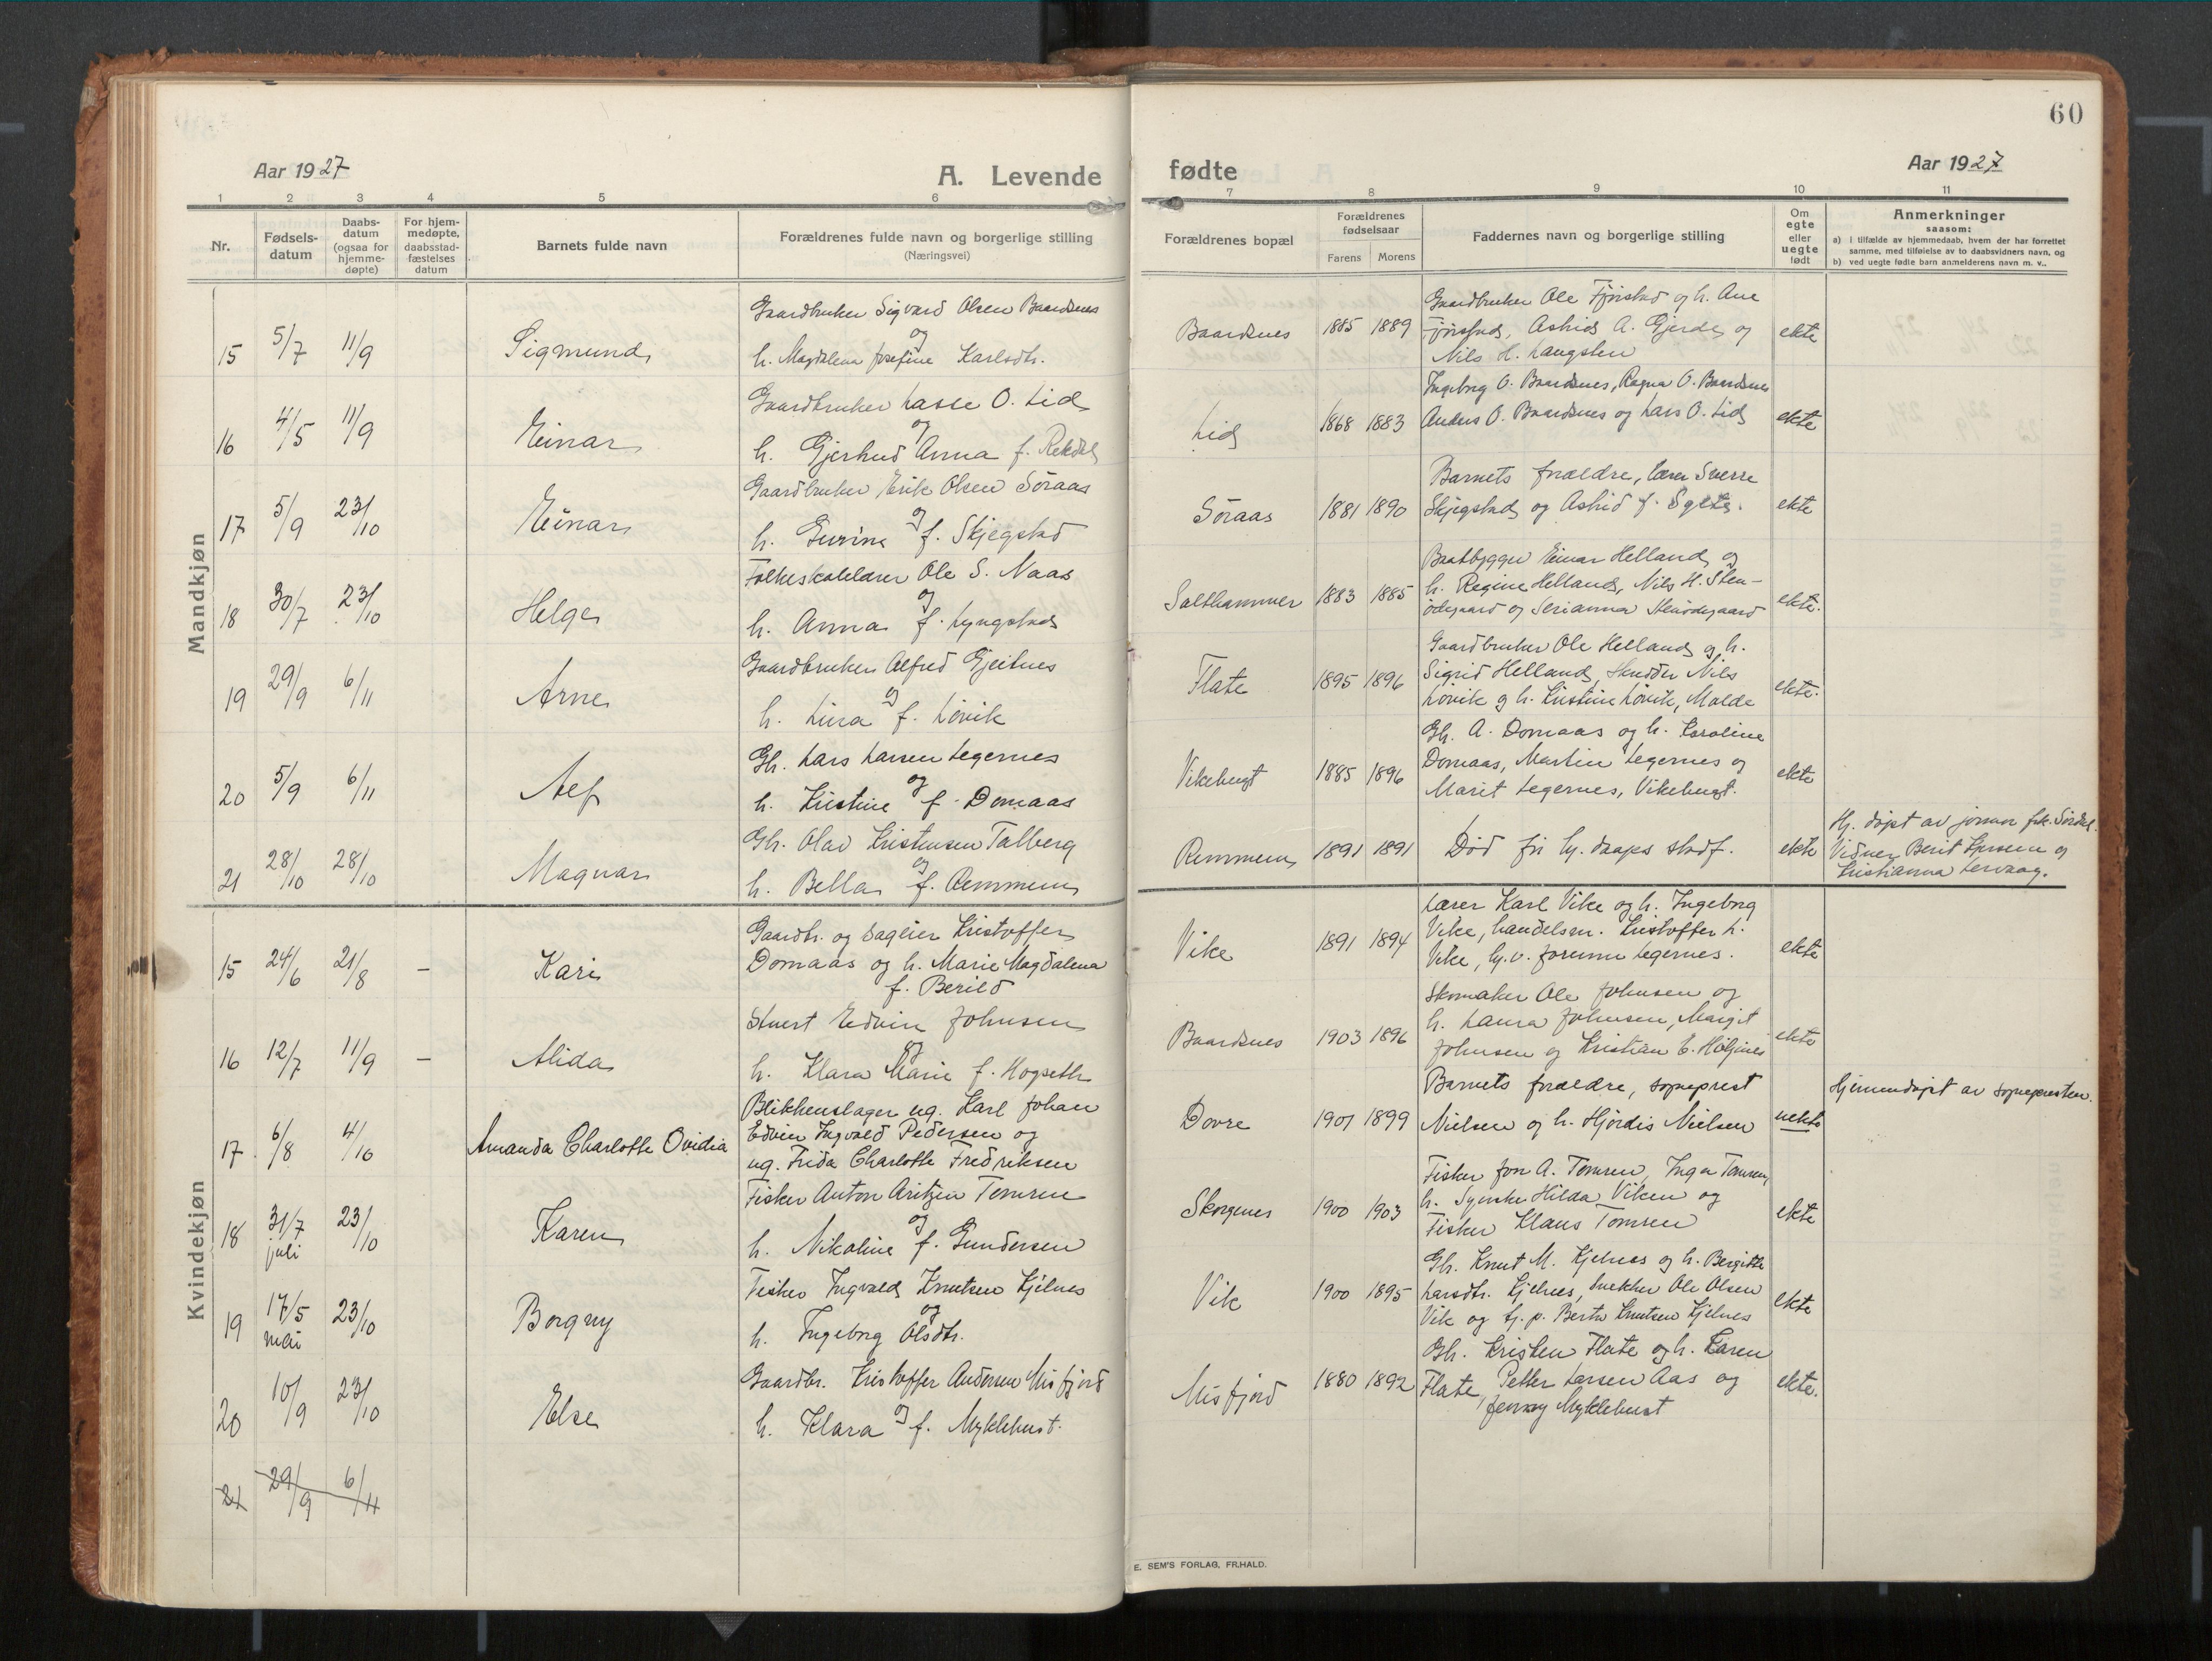 60
Aar 1927
A. Levende
fødte
Aar 1927
1 2 3 4 5 6 7 8 9 10 11
Nr.
Fødsels-
datum
Daabs-
datum
(ogsaa for
hjemme-
døpte)
For hjem-
medøpte,
daabsstad-
fæstelses
datum
Barnets fulde navn
Forældrenes fulde navn og borgerlige stilling
(Næringsvei)
Forældrenes bopæl
Forældrenes
fødselsaar
Farens Morens
Faddernes navn og borgerlige stilling
Om
egte
eller
uegte
født
Anmerkninger
saasom:
a) i tilfælde av hjemmedaab, hvem der har forrettet
samme, med tilføielse av to daabsvidners navn, og
b) ved uegte fødte barn anmelderens navn m. v..
Mandkjøn
15 5/7 11/9 Sigmund
Gaardbruker Sigvard Olsen Baardsnes
og
h. Magdalena Josefine Karlsdtr.
Baardsnes 1885 1889
Gaardbruker Ole Fjørstad og h. Ane
Fjørstad, Astrid A. Gjerde og
Nils H. Langslen
ekte
16 4/5 11/9 Einar
Gaardbruker Lasse O. Lid
og
h. Gjertrud Anna f. Rekdal
Lid 1868 1883
Ingeborg O. Baardsnes, Ragna O. Baardsnes
Anders O. Baardsnes og Lars O. Lid
ekte
17 5/9 23/10 Einar
Gaardbruker Erik Olsen Søraas
og
h. Gurine f. Skjegstad
Søraas 1881 1890
Barnets forældre, lærer Sverre
Skjegstad og Astrid f.
ekte
18 30/7 23/10 Helge
Folkeskolelærer Ole S. Naas
og
h. Anna f. Lyngstad
Salthammer 1883 1885
Baatbygger Einar Helland og
h. Regine Helland, Nils H. Sten-
ødegaard og Serianna Stenødegaard
ekte.
19 29/9 6/11 Arne
Gaardbruker Alfred Gjeitnes
og
h. Lina f. Løvik
Flate 1895 1896
Gaardbruker Ole Helland og h.
Sigrid Helland, Skrædder Nils
Løvik og h. Kristine Løvik, Molde
ekte.
20 5/9 6/11 Alf
Gbr. Lars Larsen Legernes
og
h. Kristine f. Domaas
Vikebugt 1885 1896
Gbr. A. Domaas og h. Karoline
Domaas, Martin Legernes og
Marit Legernes, Vikebugt.
ekte
21 28/10 28/10 Magnar
Gbr. Olav Kristensen Talberg
og
h. Bella f. Remmem
Remmem 1891 1891
Død før hj. daaps stadf.
ekte
Hj. døpt av jormor frk. Sørdal.
Vidner Berit og
Kristianna Lervaag.
Kvindekjøn
15 24/6 21/8 – Kari
Gaardbr. og sageier Kristoffer
Domaas og h. Marie Magdalena
f. Berild
Vike 1891 1894
Lærer Karl Vike og h. Ingeborg
Vike, handelsm. Kristoffer L.
Vike, hj.v. Legernes.
ekte
16 12/7 11/9 – Alida
Stuert Edvin Johnsen
og
h. Klara Marie f. Hogseth
Baardsnes 1903 1896
Skomaker Ole Johnsen og
h. Laura Johnsen, Margit
Johnsen og Kristian E.
ekte
17 6/8 4/10 Amanda Charlotte Ovidia
Blikkenslager ug. Karl Johan
Edvin Ingvald Pedersen og
ug. Frida Charlotte Fredriksen
Dovre 1901 1899
Barnets forældre, sogneprest
Nielsen og h. Hjørdis Nielsen
uekte
Hjemmedøpt av sognepresten.
18 31/7 23/10 Karen
juli
Fisker Anton Aritzen Tomren
og
h. Nikoline f. Gundersen
Skorgenes 1900 1903
Fisker Jon A. Tomren, Inga Tomren,
h. Syerske Hilda Viken og
Fisker Klaus Tomren
ekte
19 17/5 23/10 Borgny
mai
Fisker Ingvald Knutsen Kjelnes
og
h. Ingeborg Olsdtr.
Vik 1900 1895
Gbr. Knut M. Kjelnes og h. Bergitte
Larsdtr. Kjelnes, snekker Ole Olsen
Vik og tj. p. Berta Knutsen Kjelnes
ekte
20 10/9 23/10 Else
Gaardbr. Kristoffer Andersen Misfjord
og
h. Klara f. Myklebust.
Misfjord 1880 1892
Gbr. Kristen Flate og h. Karen
Flate, Petter Larsen Aas og
Jenny Myklebust
ekte.
21 29/9 6/11
E. SEM'S FORLAG, FR.HALD.